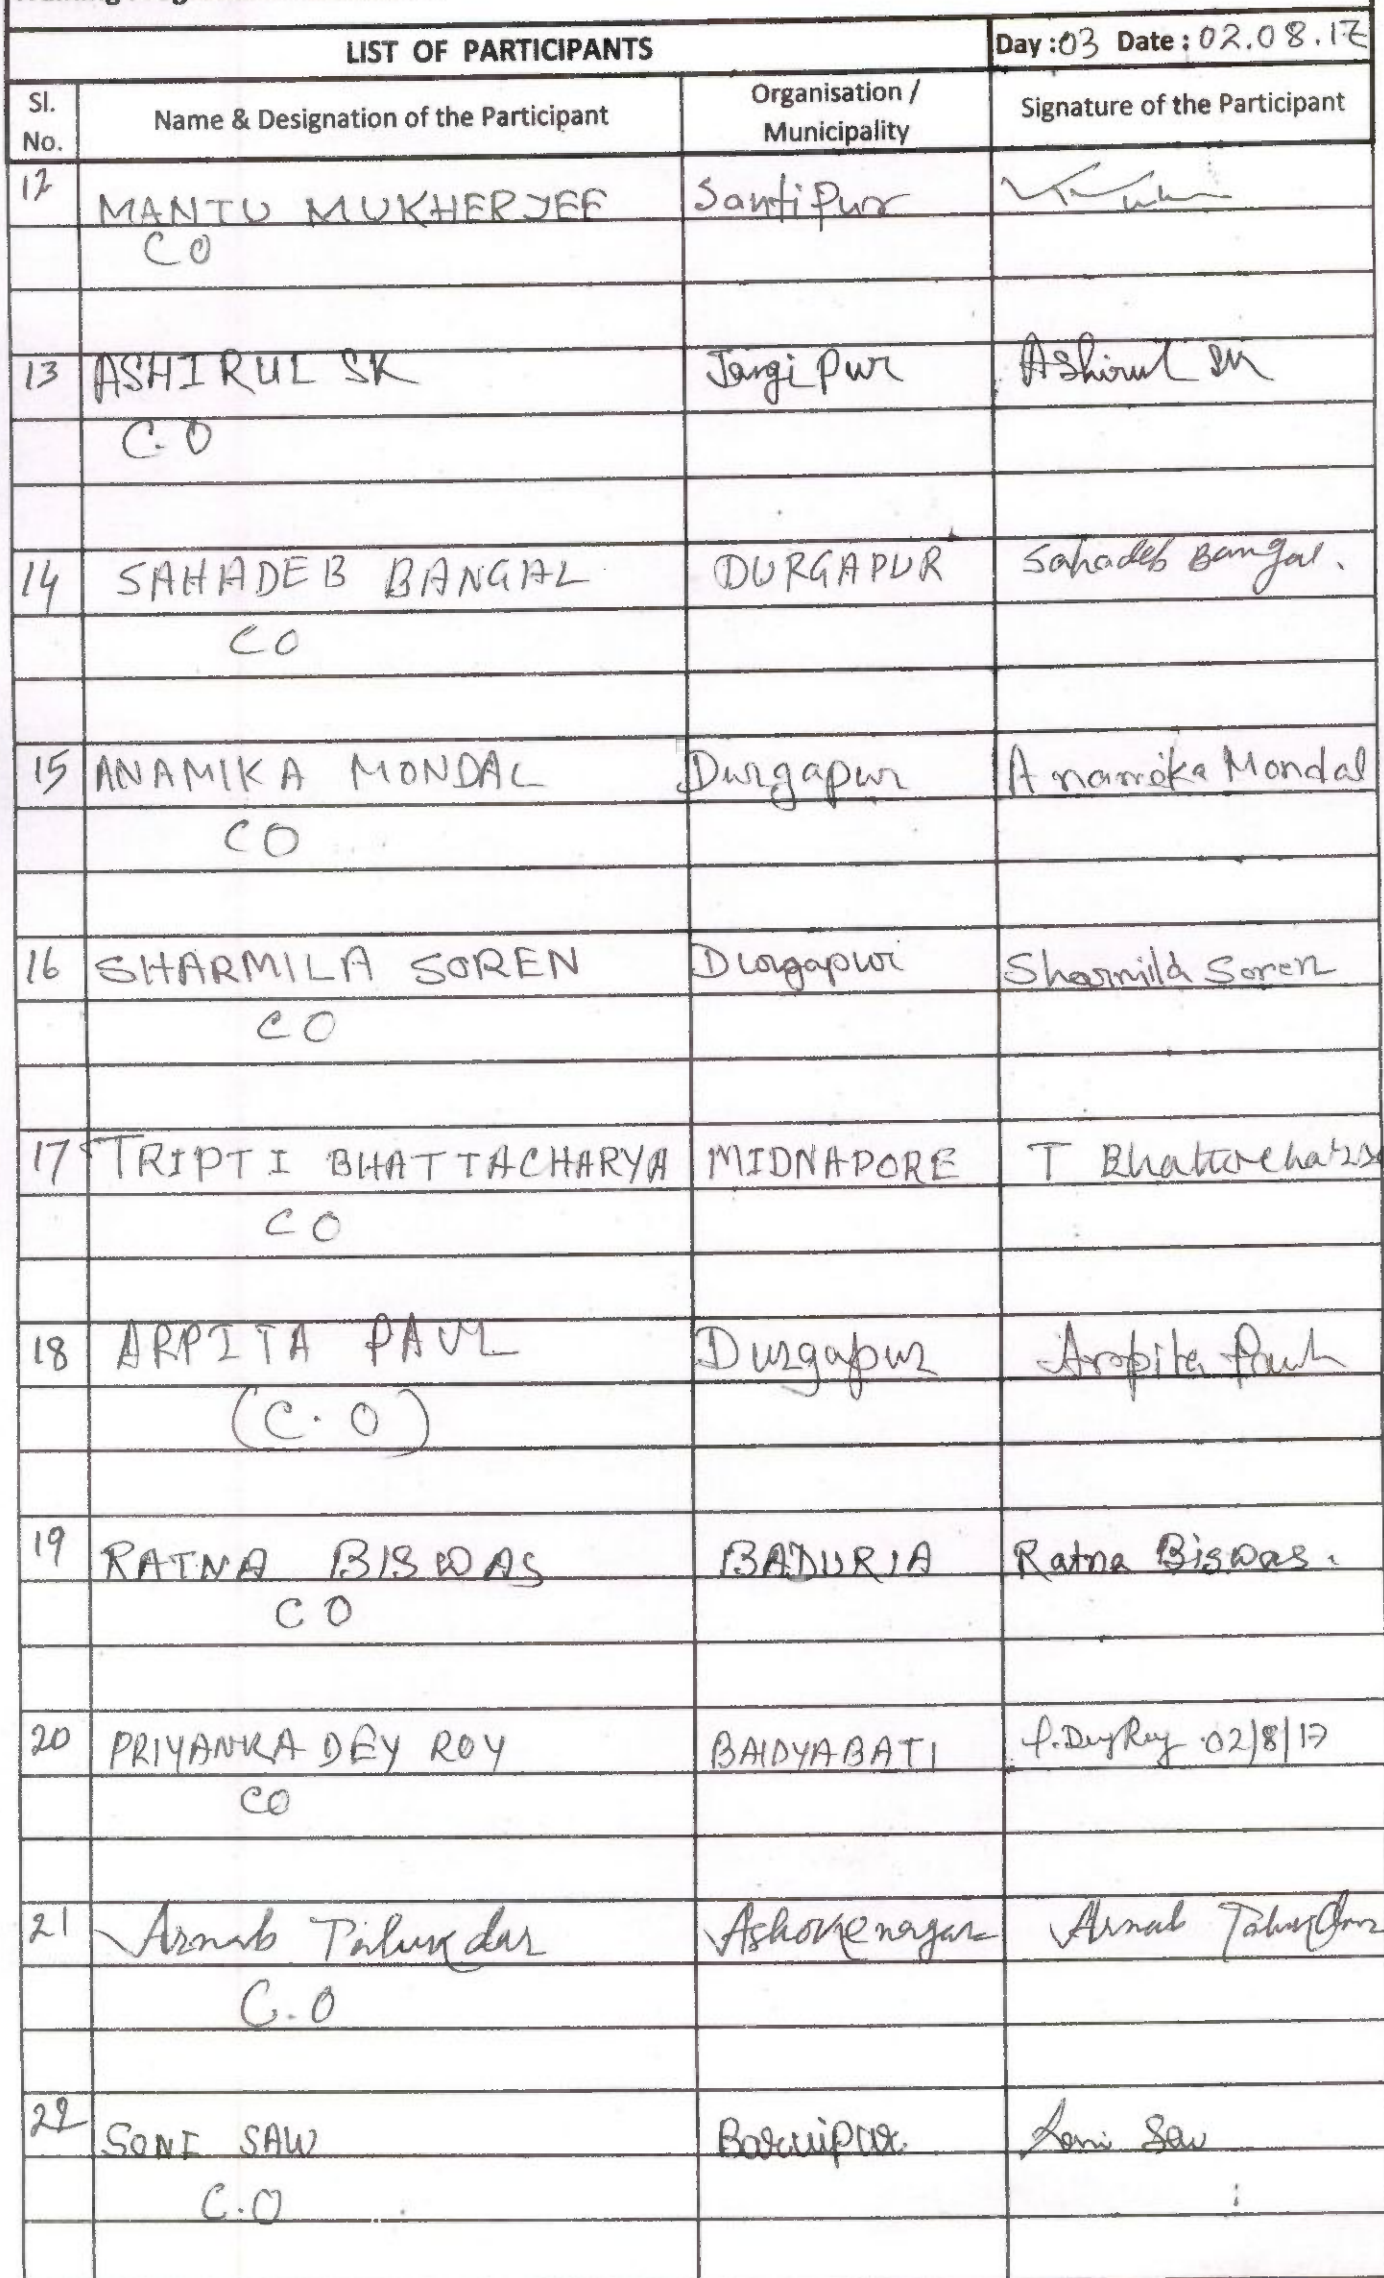 LIST OF PARTICIPANTS Day : 03 Date : 02.08.17
Sl. No. Name & Designation of the Participant Organisation / Municipality Signature of the Participant
12 MANTU MUKHERJEE Santipur
CO
13 ASHIRUL SK Jangipur Ashirul SK
C.O
14 SAHADEB BANGAL DURGAPUR Sahadeb Bangal.
CO
15 ANAMIKA MONDAL Durgapur Anamika Mondal
CO
16 SHARMILA SOREN Durgapur Sharmila Soren
CO
17 TRIPTI BHATTACHARYA MIDNAPORE T Bhattacharya
CO
18 ARPITA PAUL Durgapur Arpita Paul
(C.O)
19 RATNA BISWAS BADURIA Ratna Biswas.
CO
20 PRIYANKA DEY ROY BAIDYABATI P. Dey Roy 02/8/17
CO
21 Arnab Talukdar Ashokenagar Arnab Talukdar
C.O
22 SONI SAW Baruipur Soni Saw
C.O